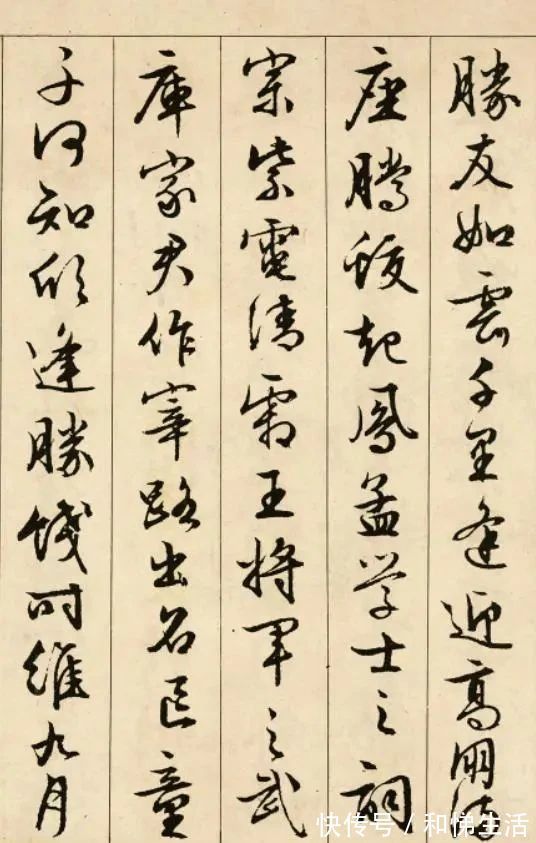 勝友如雲千里逢迎高朋滿
座騰蛟起鳳孟学士之詞
宗紫電清霜王將軍之武
庫家君作宰路出名區童
子何知躬逢勝餞时維九月
快传号 / 和悌生活